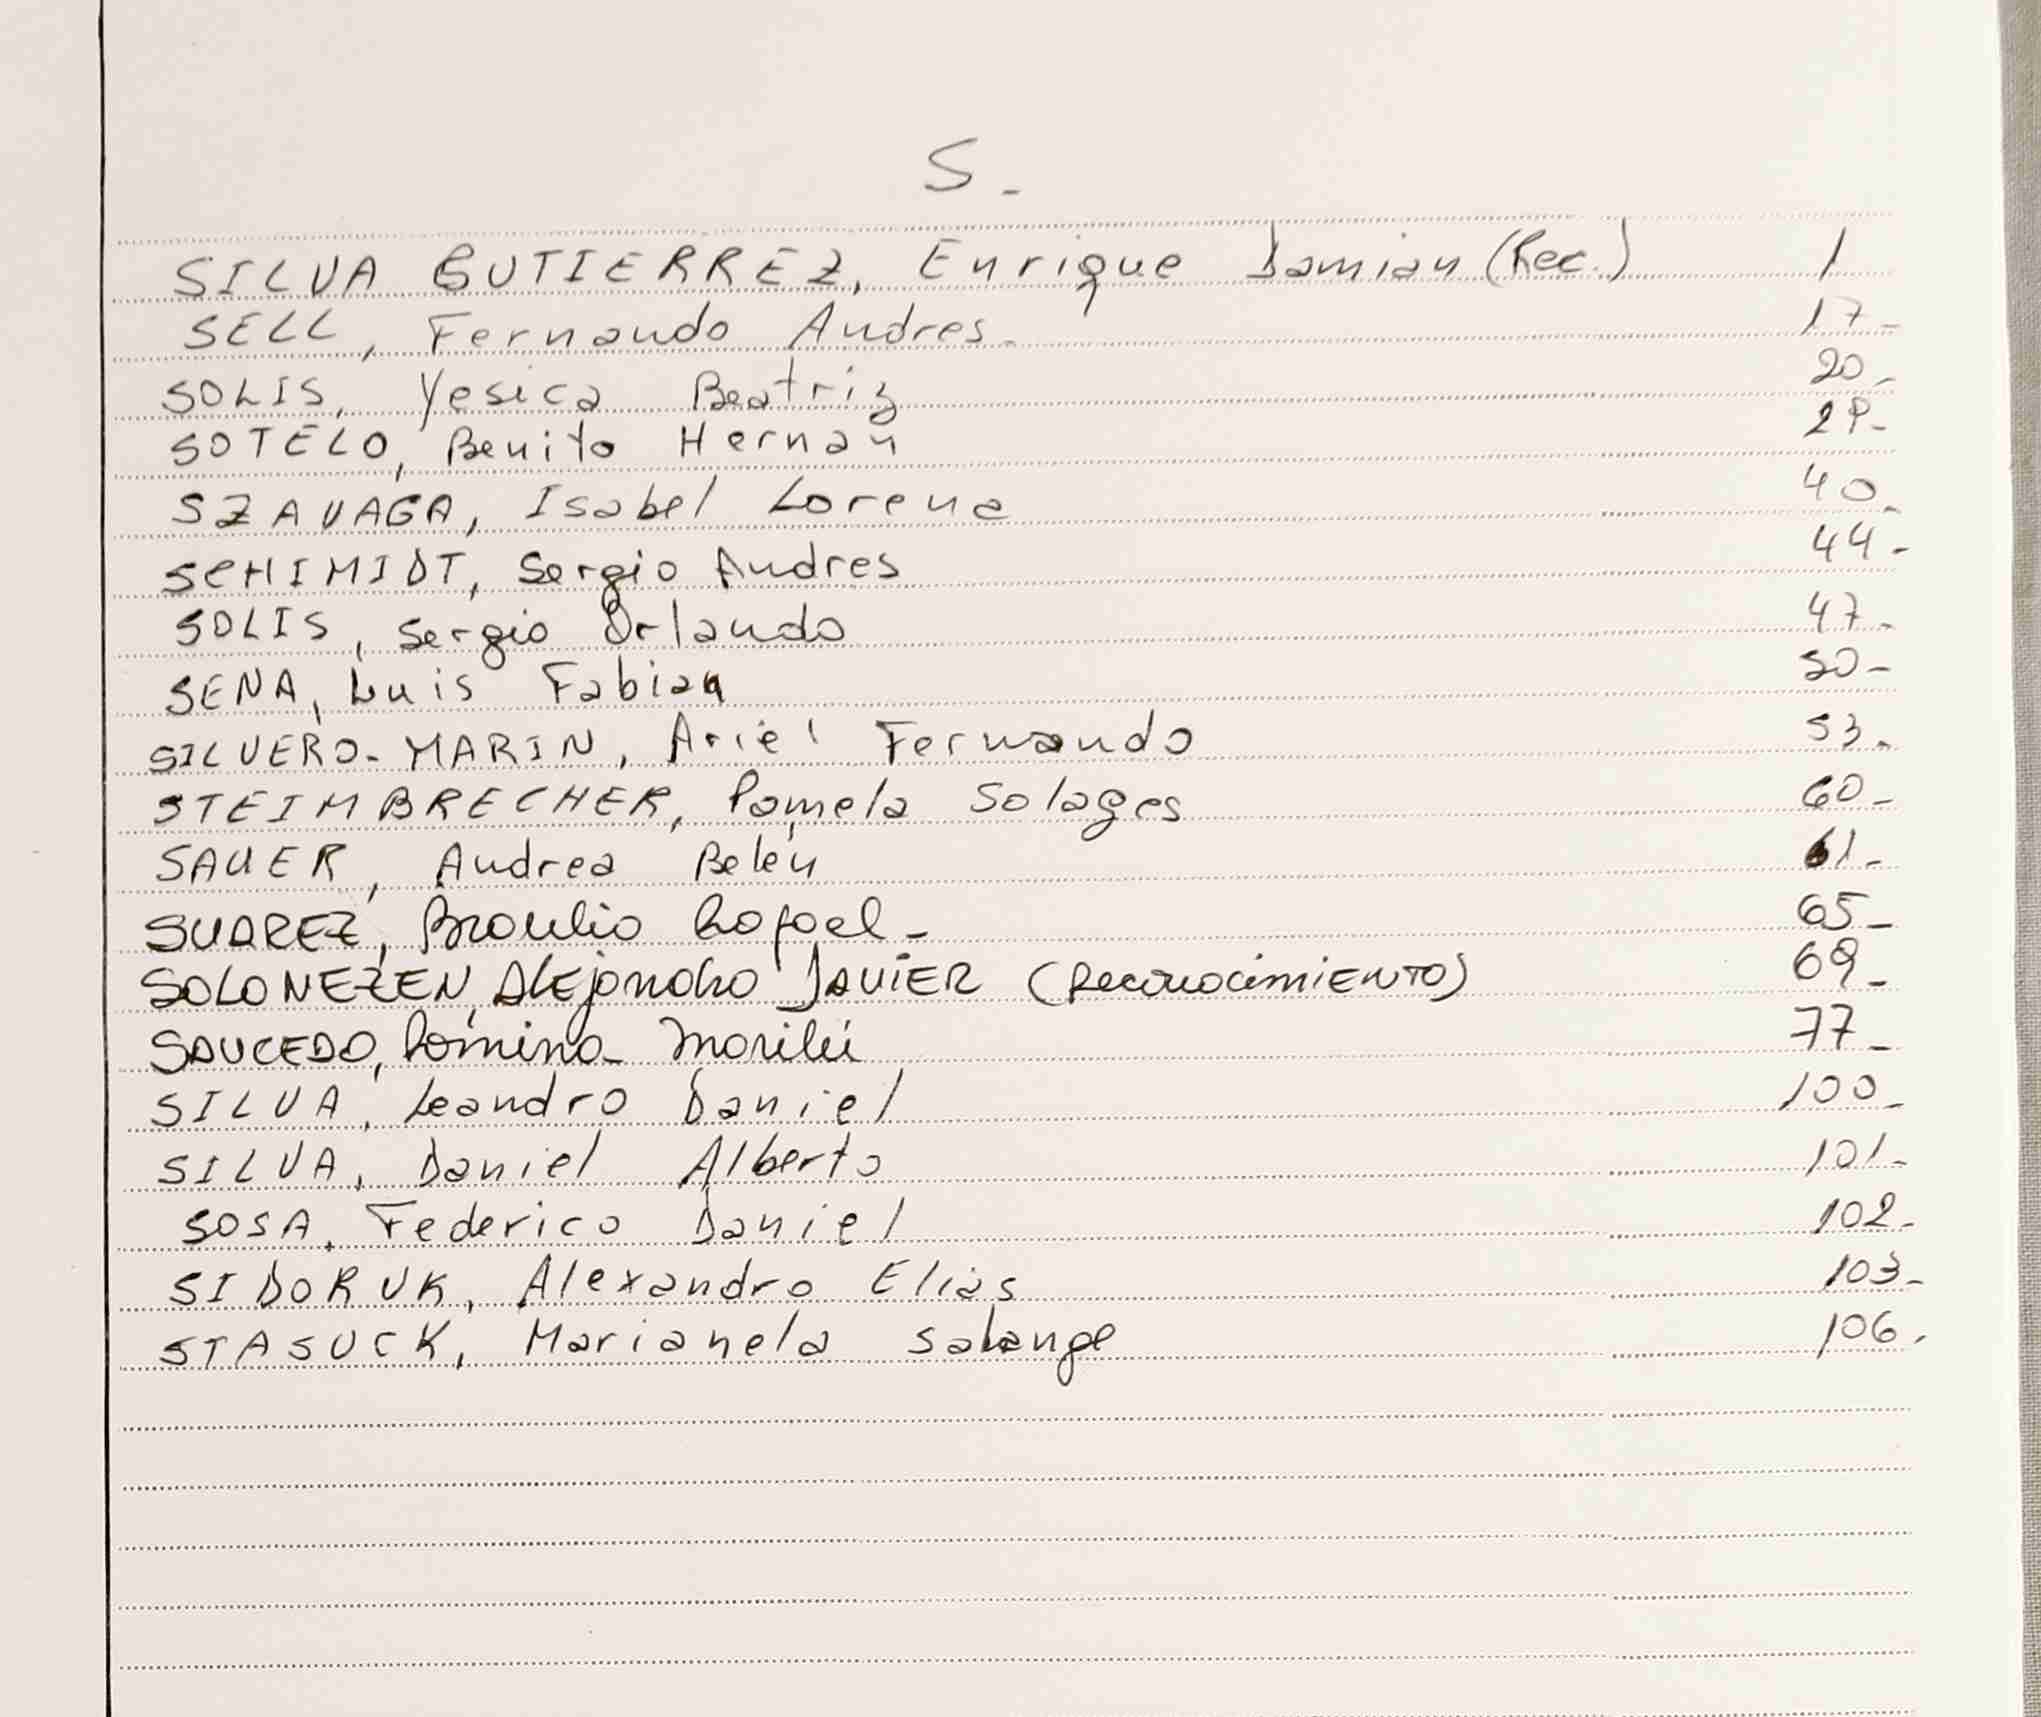 S-
SILVA GUTIERREZ, Enrique Damian (Rec.) 1
SELL, Fernando Andres. 17-
SOLIS, Yesica Beatriz 20-
SOTELO, Benito Hernan 29-
SZAVAGA, Isabel Lorena 40-
SCHIMIDT, Sergio Andres 44-
SOLIS, Sergio Orlando 47-
SENA, Luis Fabian 50-
SILVERO-MARIN, Ariel Fernando 53-
STEIMBRECHER, Pamela Solages 60-
SAUER, Andrea Belén 61-
SUAREZ, Braulio Rafael- 65-
SOLONEZEN, Alejandro JAVIER (ReconocimiENTO) 69-
SAUCEDO, Romina Marilú 77-
SILVA, Leandro Daniel 100-
SILVA, Daniel Alberto 101-
SOSA, Federico Daniel 102-
SIDORUK, Alexandro Elias 103-
STASUCK, Marianela Solange 106-